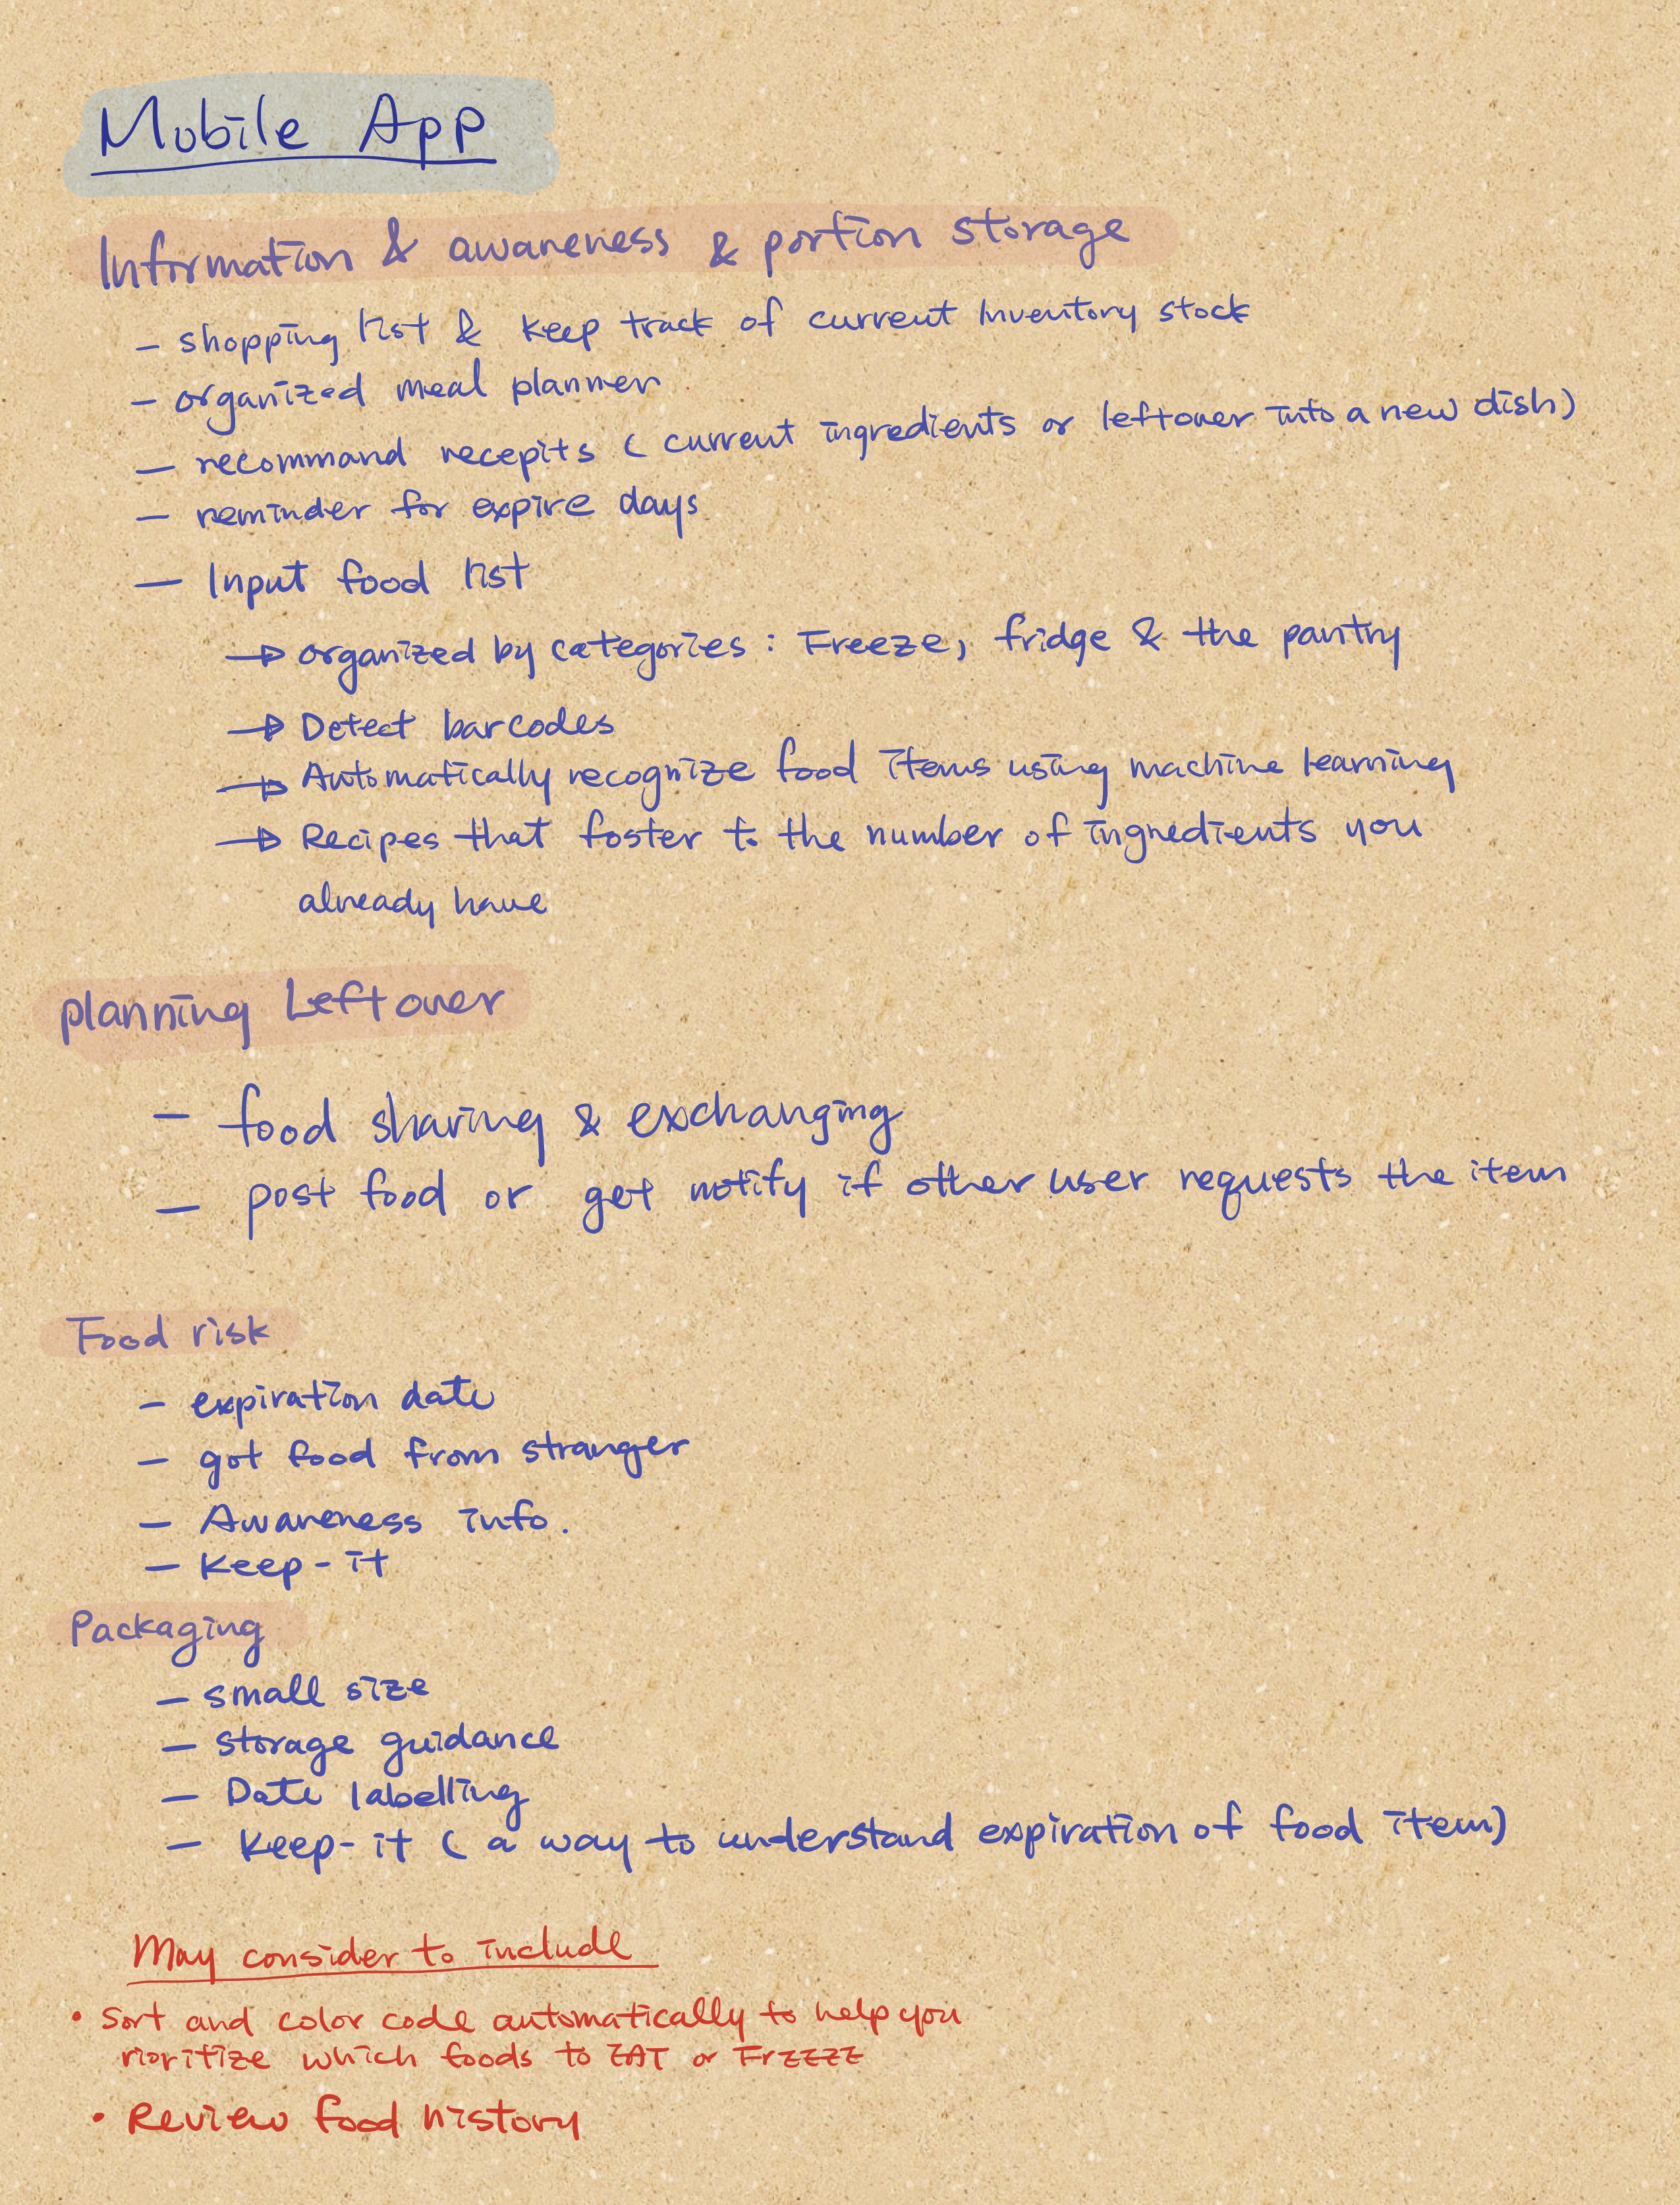 Mobile App
Information & awareness & portion storage
- shopping list & keep track of current Inventory stock
- organized meal planner
- recommand recepits ( current ingredients or leftover into a new dish)
- reminder for expire days
- Input food list
→ organized by categories : Freeze, fridge & the pantry
→ Detect barcodes
→ Automatically recognize food items using machine learning
→ Recipes that foster to the number of ingredients you
already have
planning Leftover
- food sharing & exchanging
- post food or get notify if other user requests the item
Food risk
- expiration date
- got food from stranger
- Awareness info.
- keep-it
Packaging
- small size
- storage guidance
- Date labelling
- keep-it ( a way to understand expiration of food item)
May consider to include
• Sort and color code automatically to help you
rioritize which foods to EAT or FrEEZE
• Review food history